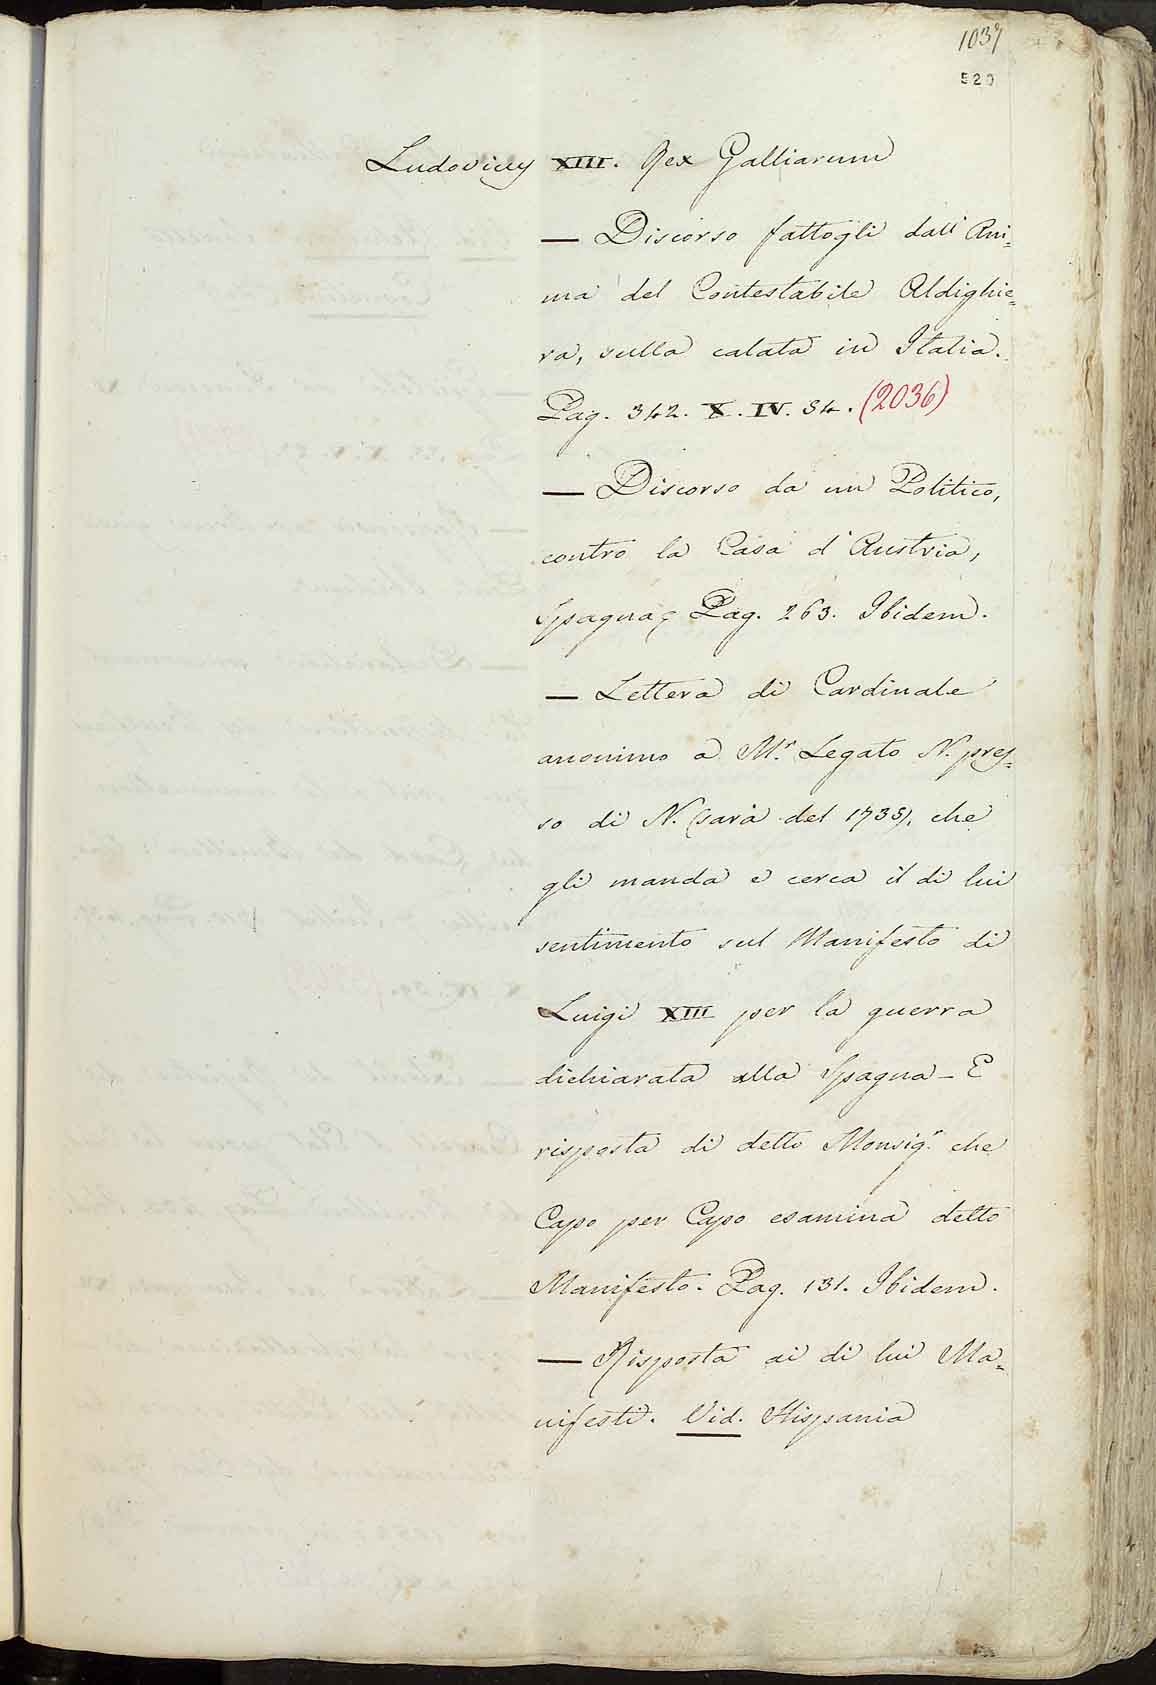 1037
520
Ludovicus XIII. Rex Galliarum
— Discorso fattogli dall' Ani=
ma del Contestabile Aldighie=
ra, sulla calata in Italia.
Pag. 342. X. IV. 34. (2036)
— Discorso da un Politico,
contro la Casa d'Austria,
Spagna, Pag. 263. Ibidem.
— Lettera di Cardinale
anonimo a Mr. Legato N. pres=
so di N. (sarà del 1735), che
gli manda e cerca il di lui
sentimento sul Manifesto di
Luigi XIII per la guerra
dichiarata alla Spagna – E
risposta di detto Monsigr. che
Capo per Capo esamina detto
Manifesto. Pag. 131. Ibidem.
— Risposta ai di lui Ma=
nifesti. Vid. Hispania